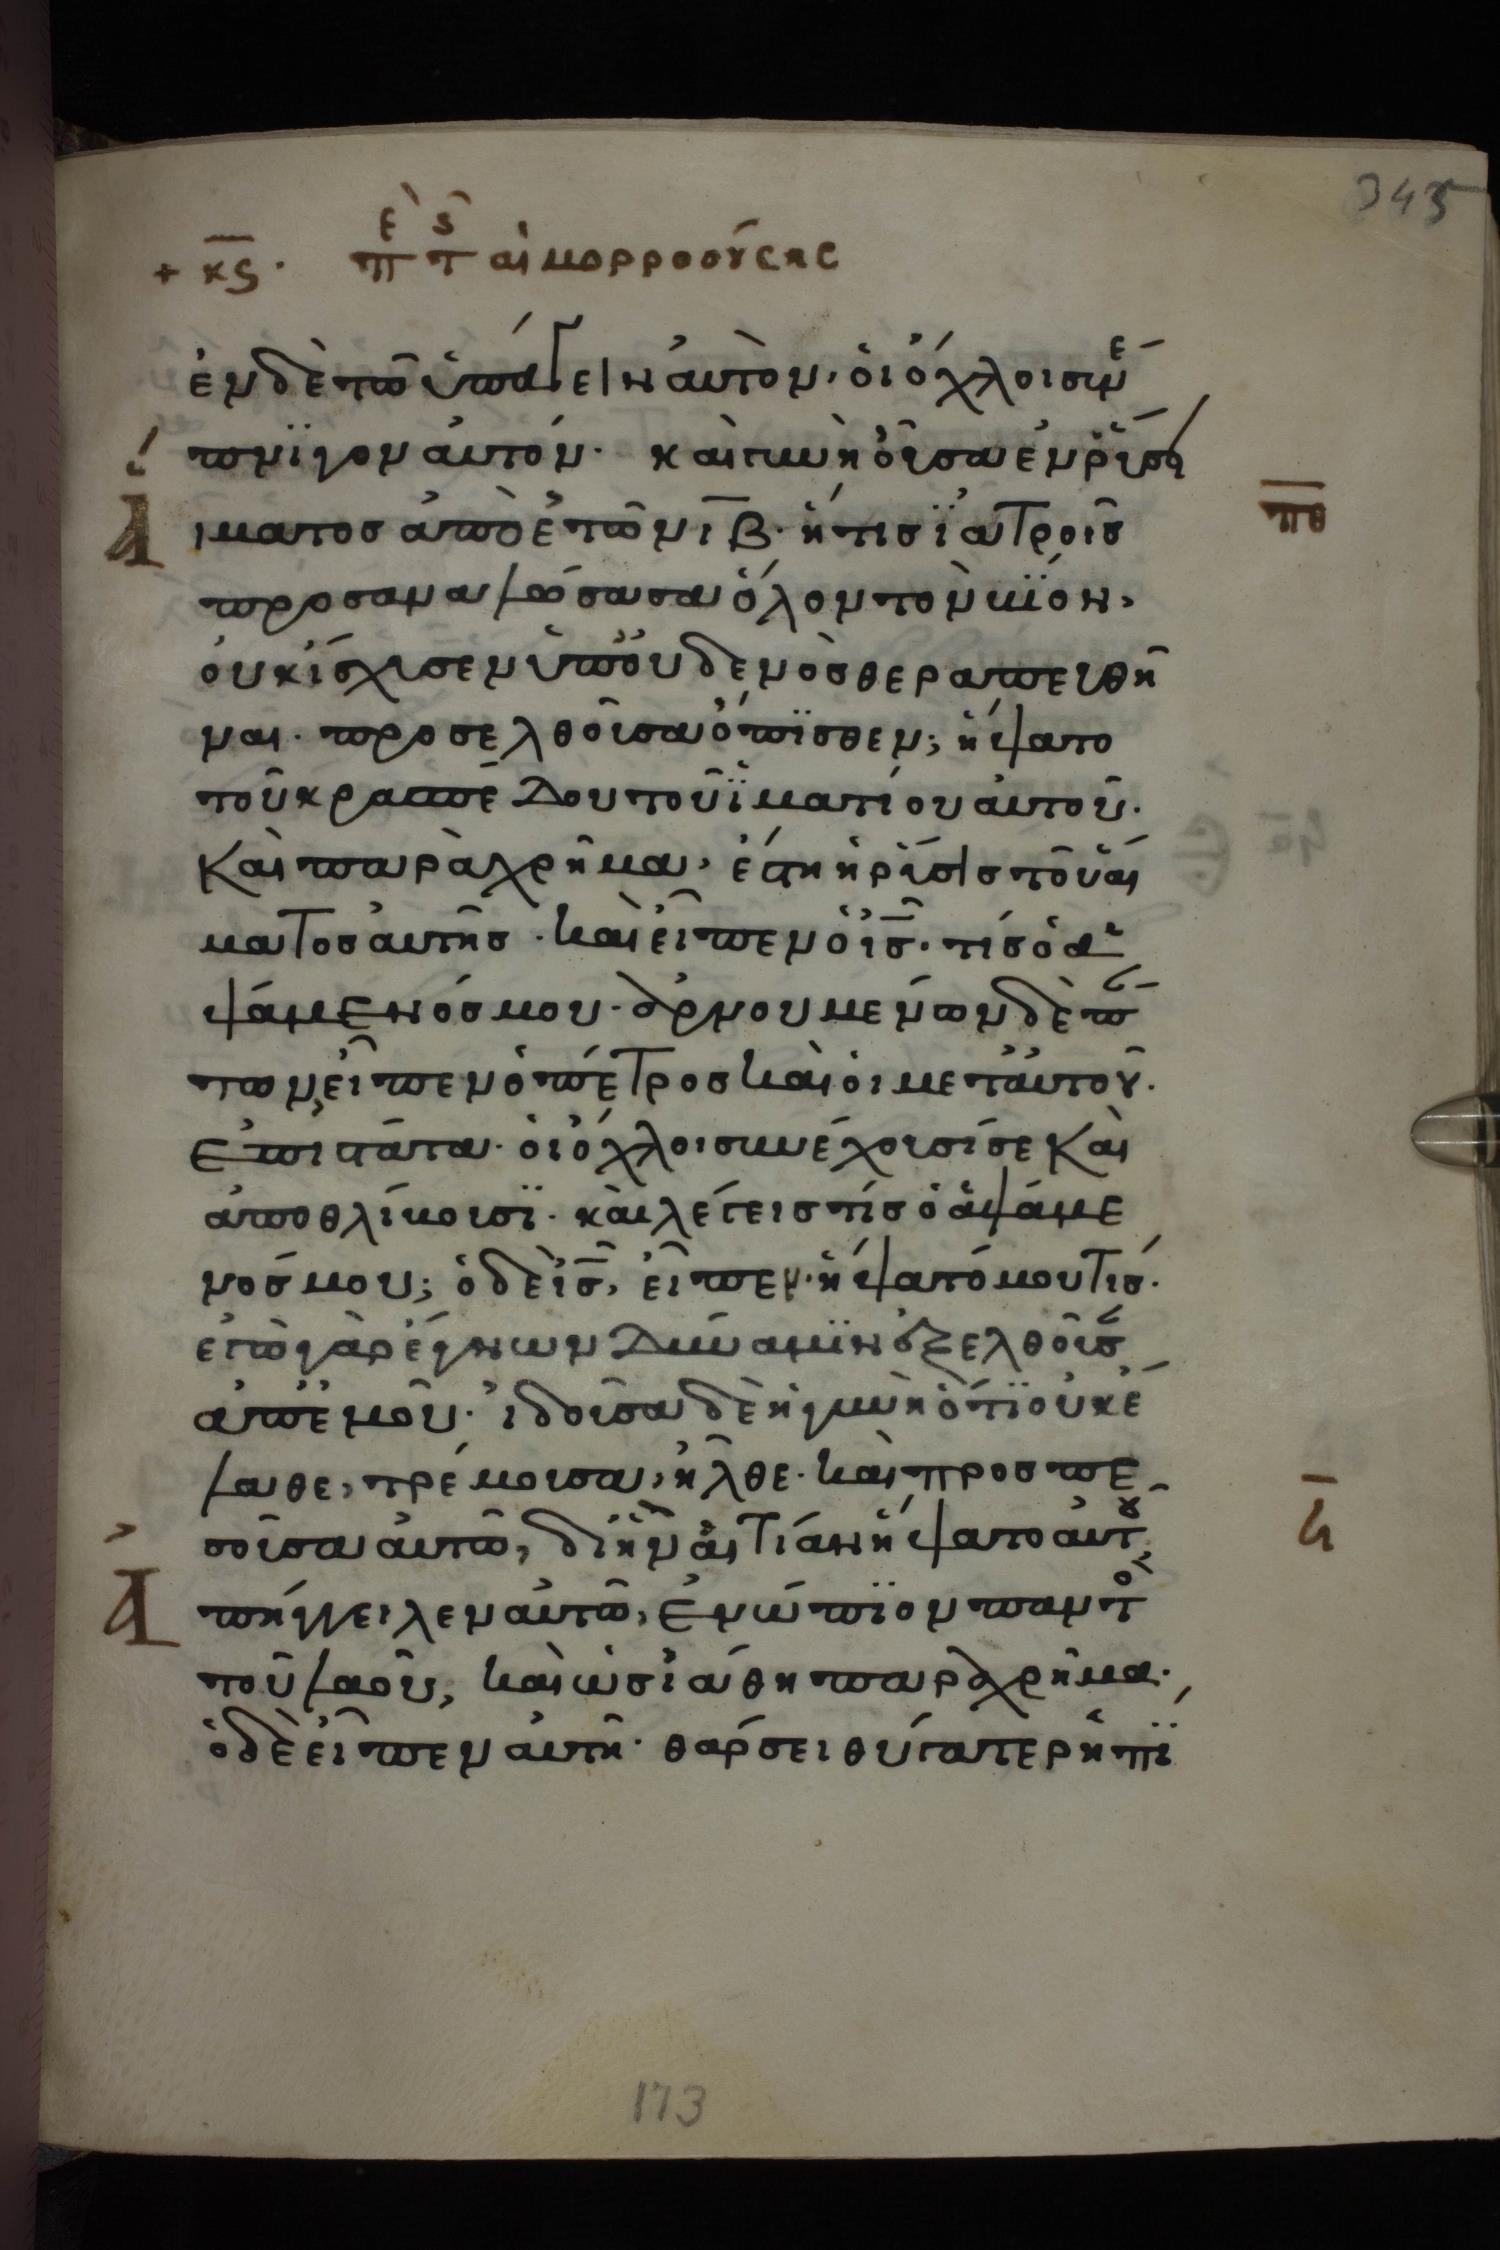 345
+ κϛ· πε τς αἱμορροούσης
ἐν δὲ τῶ ὑπάγειν αὐτὸν, οἱ ὄχλοι συνέ
πνϊγον αὐτόν· καὶ γυνὴ οὖσα ἐν ῥύσει
ἵματος ἀπὸ ἐτῶν ιβ· ἥτις ϊατροῖς
προσαναλώσασα ὅλον τὸν βϊόν,
οὐκ ἴσχυσεν ὑπ' οὐδενὸς θεραπευθῆ
ναι· προσελθοῦσα ὄπϊσθεν; ἥψατο
τοῦ κρασπέδου τοῦ ϊματίου αὐτοῦ·
καὶ παραχρῆμα, ἔστη ἡ ῥύσις τοῦ αἵ
ματος αὐτῆς· καὶ εἶπεν ὁ ις· τίς ὁ ἁ
ψάμενός μου· ἀρνουμένων δὲ πάν
των, εἶπεν ὁ πέτρος καὶ οἱ μετ' αὐτοῦ·
ἐπιστάτα· οἱ ὄχλοι συνέχουσί σε καὶ
ἀποθλίβουσϊ· καὶ λέγεις τίς ὁ ἁψάμε
νός μου; ὁ δὲ ις, εἶπεν· ἥψατό μου τίς·
ἐγὼ γὰρ ἔγνων δύναμϊν ἐξελθοῦσ
ἀπ' ἐμοῦ· ἰδοῦσα δὲ ἡ γυνὴ ὅτϊ οὐκ ἔ
λαθε, τρέμουσα, ἦλθε· καὶ προσπε
σοῦσα αὐτῶ, δι' ἣν αἰτίαν ἥψατο αὐτοῦ,
Ἀ πήγγειλεν αὐτῶ, ἐνώπϊον παντὸ
τοῦ λαοῦ, καὶ ὡς ἰάθη παραχρῆμα·
ὁ δὲ εἶπεν αὐτῆ· θάρσει θύγατερ, ἡ πί
πθ
173